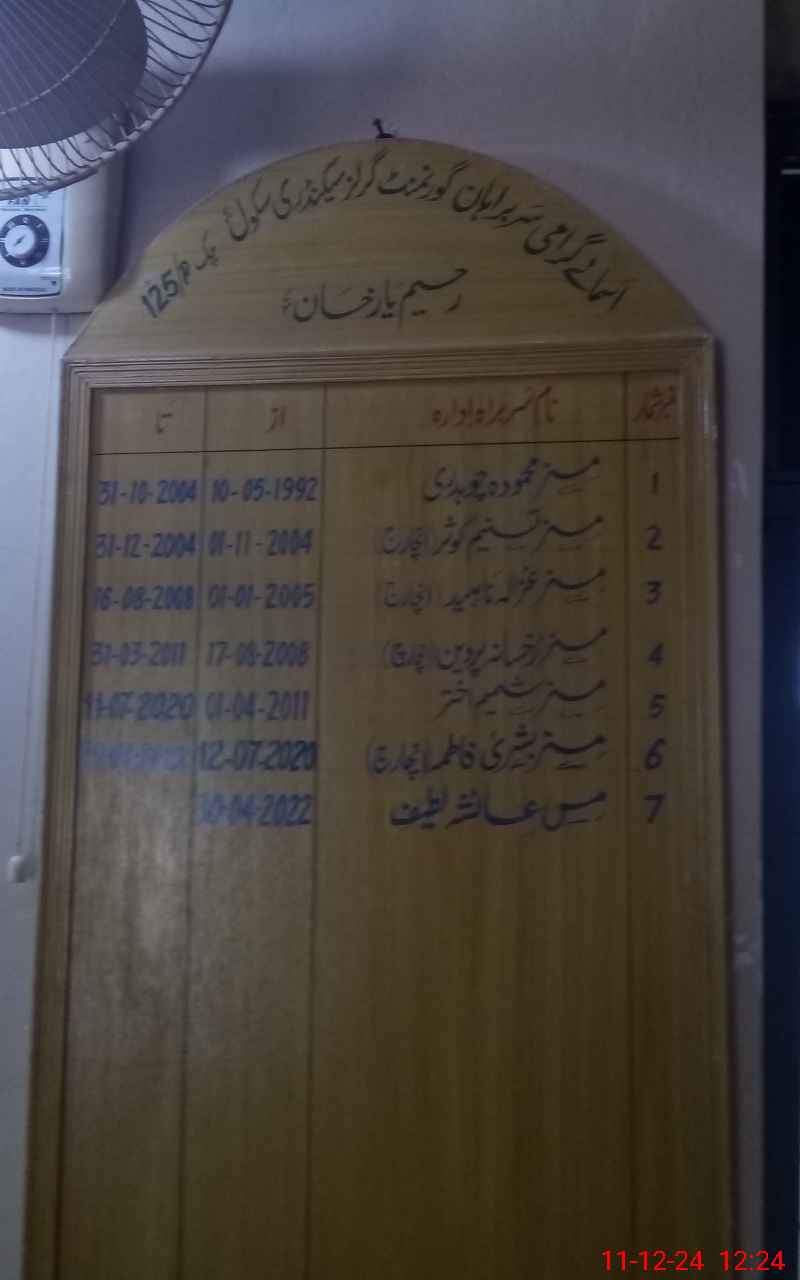 اسمائے گرامی سربراہان گورنمنٹ گرلز سیکنڈری سکول چک 125/P
رحیم یار خان
نمبر شمار نام سربراہ ادارہ از تا
1 مسز محمودہ چوہدری 10-05-1992 31-10-2004
2 مسز تسنیم کوثر (انچارج) 01-11-2004 31-12-2004
3 مسز غزالہ ناہید (انچارج) 01-01-2005 16-08-2008
4 مسز رخسانہ پروین (انچارج) 17-08-2008 31-03-2011
5 مسز شمیم اختر 01-04-2011 11-07-2020
6 مسز بشریٰ فاطمہ (انچارج) 12-07-2020
7 مس عائشہ لطیف 30-04-2022
11-12-24 12:24